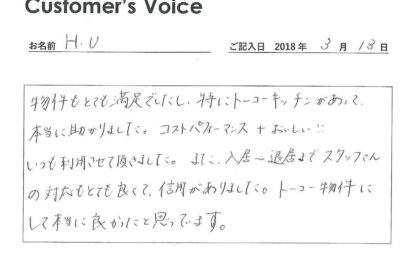 Customer's Voice
お名前 H.U ご記入日 2018 年 3 月 13 日
物件もとても満足でしたし、特にトーコーキッチンがあって、
本当に助かりました。コストパフォーマンス + おいしい!!
いつも利用させて頂きました。また、入居~退居までスタッフさん
の対応もとても良くて、信用がありました。トーコー物件に
して本当に良かったと思っています。